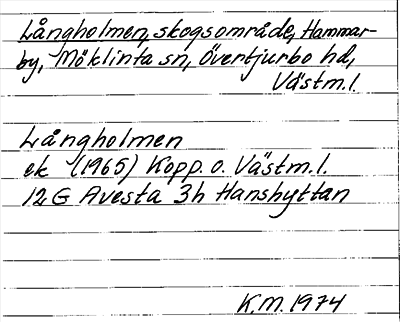 Långholmen, skogsområde, Hammar-
by, Möklinta sn, Övertjurbo hd,
Västm.l.
Långholmen
ek (1965) Kopp. o. Västm.l.
12 G Avesta 3h Hanshyttan
K.M. 1974